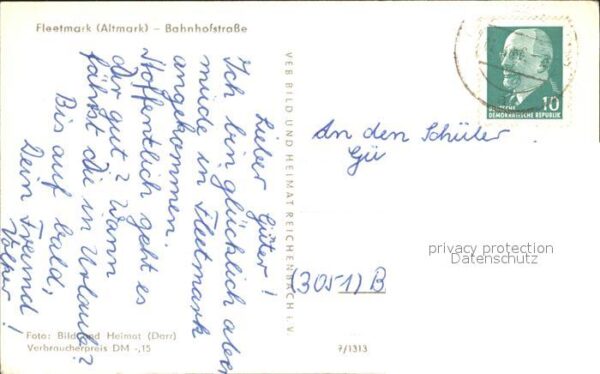 Fleetmark (Altmark) – Bahnhofstraße
Lieber Günter!
Ich bin glücklich aber
müde in Fleetmark
angekommen.
Hoffentlich geht es
dir gut? Wann
fährst du in Urlaub?
Bis auf bald,
Dein Freund
Volker!
Foto: Bild und Heimat (Darr)
Verbraucherpreis DM -,15
VEB BILD UND HEIMAT REICHENBACH i. V.
7/1313
10
DEUTSCHE
DEMOKRATISCHE REPUBLIK
An den Schüler
Gü
privacy protection
Datenschutz
(3051) B